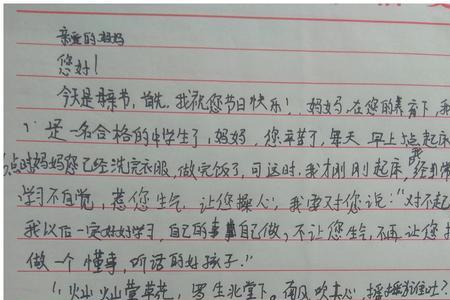 亲爱的妈妈
您好！
今天是母亲节，首先，我祝您节日快乐！妈妈，在您的养育下，我
是一名合格的中学生了，妈妈，您辛苦了，每天早上5点起床
点时妈妈您已经洗完衣服，做完饭了，可这时，我才刚刚起床，我经常
学习不自觉，惹您生气，让您操心，我要对您说：“对不起
我以后一定好好学习，自己的事自己做，不让您生气，不再让您操
做一个懂事，听话的好孩子。”
“灿灿萱草花，罗生北堂下，南风吹其心，摇摇为谁吐？